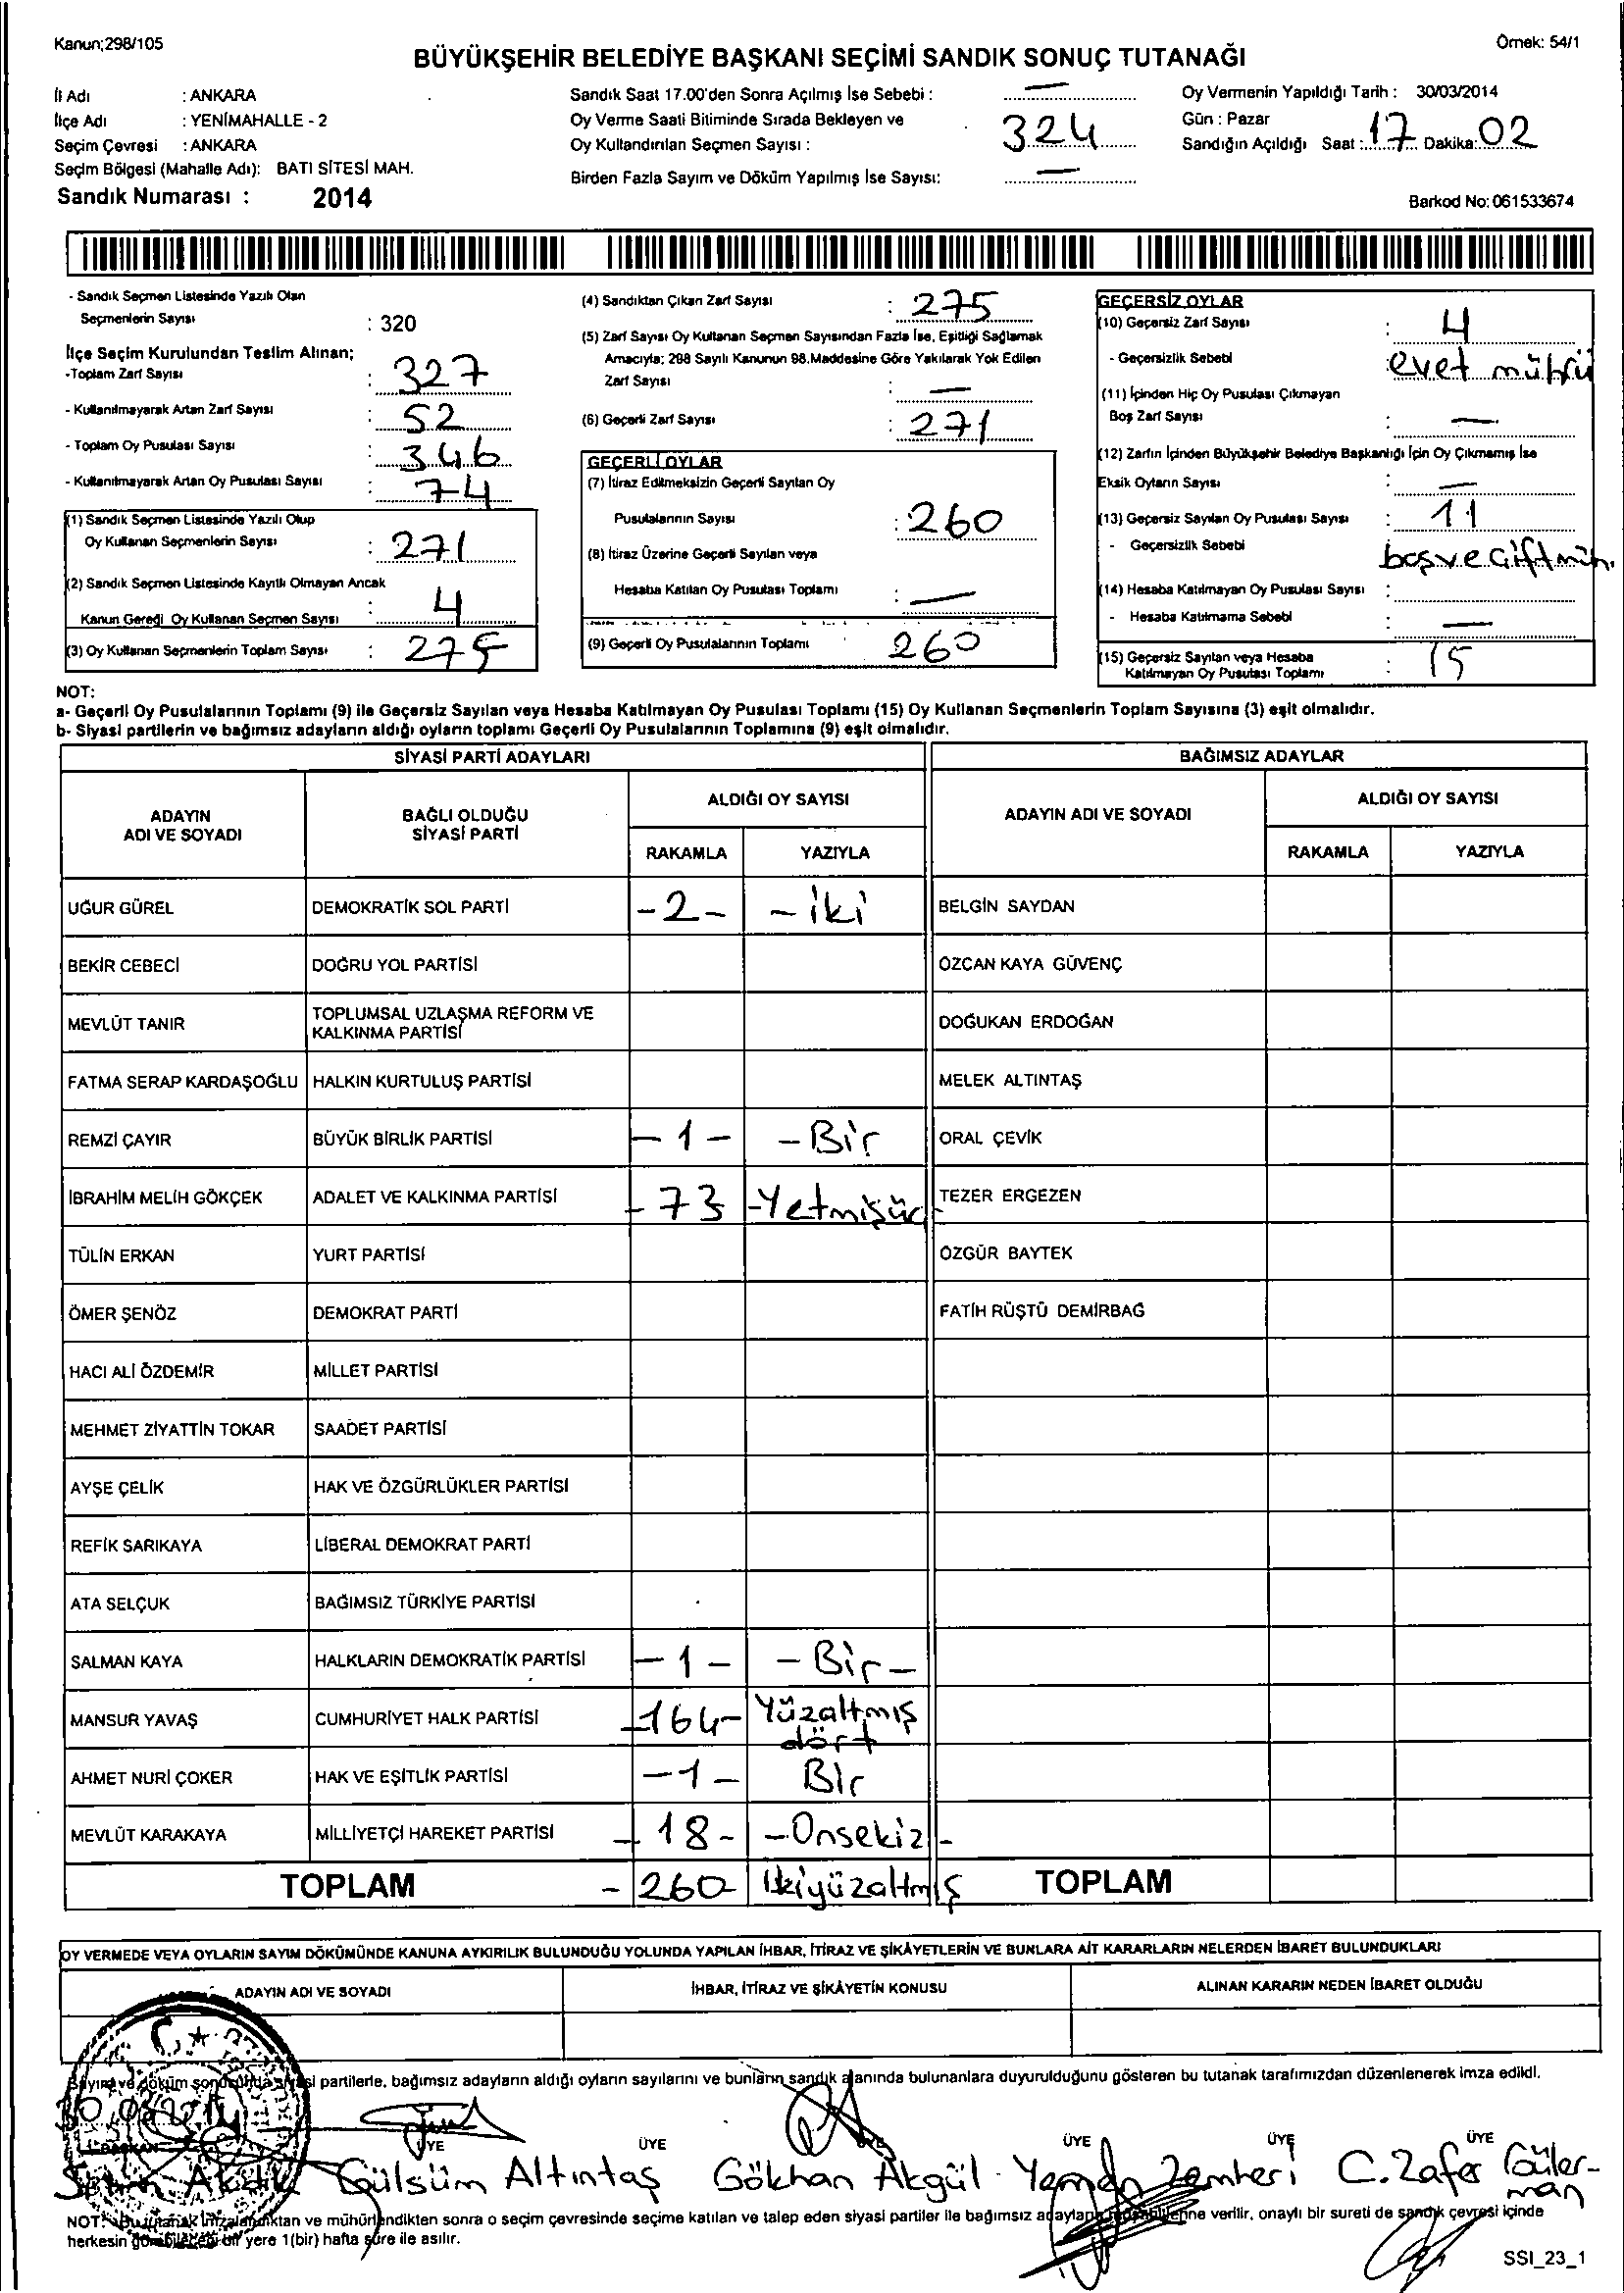 Kanun;298/105
Örnek: 54/1
BÜYÜKŞEHİR BELEDİYE BAŞKANI SEÇİMİ SANDIK SONUÇ TUTANAĞI
İl Adı : ANKARA
İlçe Adı : YENİMAHALLE - 2
Seçim Çevresi : ANKARA
Seçim Bölgesi (Mahalle Adı): BATI SİTESİ MAH.
Sandık Numarası : 2014
Sandık Saat 17.00'den Sonra Açılmış İse Sebebi : —
Oy Verme Saati Bitiminde Sırada Bekleyen ve
Oy Kullandırılan Seçmen Sayısı : 324
Birden Fazla Sayım ve Döküm Yapılmış İse Sayısı: —
Oy Vermenin Yapıldığı Tarih : 30/03/2014
Gün : Pazar
Sandığın Açıldığı Saat : 17 Dakika: 02
Barkod No: 061533674
- Sandık Seçmen Listesinde Yazılı Olan
Seçmenlerin Sayısı : 320
İlçe Seçim Kurulundan Teslim Alınan;
-Toplam Zarf Sayısı : 327
- Kullanılmayarak Artan Zarf Sayısı : 52
- Toplam Oy Pusulası Sayısı : 346
- Kullanılmayarak Artan Oy Pusulası Sayısı : 74
(1) Sandık Seçmen Listesinde Yazılı Olup
Oy Kullanan Seçmenlerin Sayısı : 271
(2) Sandık Seçmen Listesinde Kayıtlı Olmayan Ancak
Kanun Gereği Oy Kullanan Seçmen Sayısı : 4
(3) Oy Kullanan Seçmenlerin Toplam Sayısı : 275
(4) Sandıktan Çıkan Zarf Sayısı : 275
(5) Zarf Sayısı Oy Kullanan Seçmen Sayısından Fazla İse, Eşitliği Sağlamak
Amacıyla; 298 Sayılı Kanunun 98.Maddesine Göre Yakılarak Yok Edilen
Zarf Sayısı : —
(6) Geçerli Zarf Sayısı : 271
GEÇERLİ OYLAR
(7) İtiraz Edilmeksizin Geçerli Sayılan Oy
Pusulalarının Sayısı : 260
(8) İtiraz Üzerine Geçerli Sayılan veya
Hesaba Katılan Oy Pusulası Toplamı : —
(9) Geçerli Oy Pusulalarının Toplamı : 260
GEÇERSİZ OYLAR
(10) Geçersiz Zarf Sayısı : 4
- Geçersizlik Sebebi : evet mührü
(11) İçinden Hiç Oy Pusulası Çıkmayan
Boş Zarf Sayısı : —
(12) Zarfın İçinden Büyükşehir Belediye Başkanlığı İçin Oy Çıkmamış İse
Eksik Oyların Sayısı : —
(13) Geçersiz Sayılan Oy Pusulası Sayısı : 11
- Geçersizlik Sebebi boş ve çift müh.
(14) Hesaba Katılmayan Oy Pusulası Sayısı :
- Hesaba Katılmama Sebebi : —
(15) Geçersiz Sayılan veya Hesaba
Katılmayan Oy Pusulası Toplamı : 15
NOT:
a- Geçerli Oy Pusulalarının Toplamı (9) ile Geçersiz Sayılan veya Hesaba Katılmayan Oy Pusulası Toplamı (15) Oy Kullanan Seçmenlerin Toplam Sayısına (3) eşit olmalıdır.
b- Siyasi partilerin ve bağımsız adayların aldığı oyların toplamı Geçerli Oy Pusulalarının Toplamına (9) eşit olmalıdır.
SİYASİ PARTİ ADAYLARI BAĞIMSIZ ADAYLAR
ADAYIN ADI VE SOYADI BAĞLI OLDUĞU SİYASİ PARTİ ALDIĞI OY SAYISI ADAYIN ADI VE SOYADI ALDIĞI OY SAYISI
RAKAMLA YAZIYLA RAKAMLA YAZIYLA
UĞUR GÜREL DEMOKRATİK SOL PARTİ -2- - iki BELGİN SAYDAN
BEKİR CEBECİ DOĞRU YOL PARTİSİ ÖZCAN KAYA GÜVENÇ
MEVLÜT TANIR TOPLUMSAL UZLAŞMA REFORM VE KALKINMA PARTİSİ DOĞUKAN ERDOĞAN
FATMA SERAP KARDAŞOĞLU HALKIN KURTULUŞ PARTİSİ MELEK ALTINTAŞ
REMZİ ÇAYIR BÜYÜK BİRLİK PARTİSİ -1- - Bir ORAL ÇEVİK
İBRAHİM MELİH GÖKÇEK ADALET VE KALKINMA PARTİSİ - 73 -Yetmişüç- TEZER ERGEZEN
TÜLİN ERKAN YURT PARTİSİ ÖZGÜR BAYTEK
ÖMER ŞENÖZ DEMOKRAT PARTİ FATİH RÜŞTÜ DEMİRBAĞ
HACI ALİ ÖZDEMİR MİLLET PARTİSİ
MEHMET ZİYATTİN TOKAR SAADET PARTİSİ
AYŞE ÇELİK HAK VE ÖZGÜRLÜKLER PARTİSİ
REFİK SARIKAYA LİBERAL DEMOKRAT PARTİ
ATA SELÇUK BAĞIMSIZ TÜRKİYE PARTİSİ
SALMAN KAYA HALKLARIN DEMOKRATİK PARTİSİ -1- - Bir-
MANSUR YAVAŞ CUMHURİYET HALK PARTİSİ -164- Yüzaltmış dört
AHMET NURİ ÇOKER HAK VE EŞİTLİK PARTİSİ -1- Bir
MEVLÜT KARAKAYA MİLLİYETÇİ HAREKET PARTİSİ - 18 - -Onsekiz-
TOPLAM -260- İkiyüzaltmış TOPLAM
OY VERMEDE VEYA OYLARIN SAYIM DÖKÜMÜNDE KANUNA AYKIRILIK BULUNDUĞU YOLUNDA YAPILAN İHBAR, İTİRAZ VE ŞİKÂYETLERİN VE BUNLARA AİT KARARLARIN NELERDEN İBARET BULUNDUKLARI
ADAYIN ADI VE SOYADI İHBAR, İTİRAZ VE ŞİKÂYETİN KONUSU ALINAN KARARIN NEDEN İBARET OLDUĞU
Sayım ve döküm sonucunda siyasi partilerle, bağımsız adayların aldığı oyların sayılarını ve bunların sandık alanında bulunanlara duyurulduğunu gösteren bu tutanak tarafımızdan düzenlenerek imza edildi.
BAŞKAN ÜYE ÜYE ÜYE ÜYE ÜYE ÜYE
Gülsüm Altıntaş Gökhan Akgül Yemen Zemheri C. Zafer Gülerman
NOT: Bu tutanak imzalandıktan ve mühürlendikten sonra o seçim çevresinde seçime katılan ve talep eden siyasi partiler ile bağımsız adayların müşahitlerine verilir, onaylı bir sureti de sandık çevresi içinde
herkesin görebileceği bir yere 1(bir) hafta süre ile asılır.
SSI_23_1